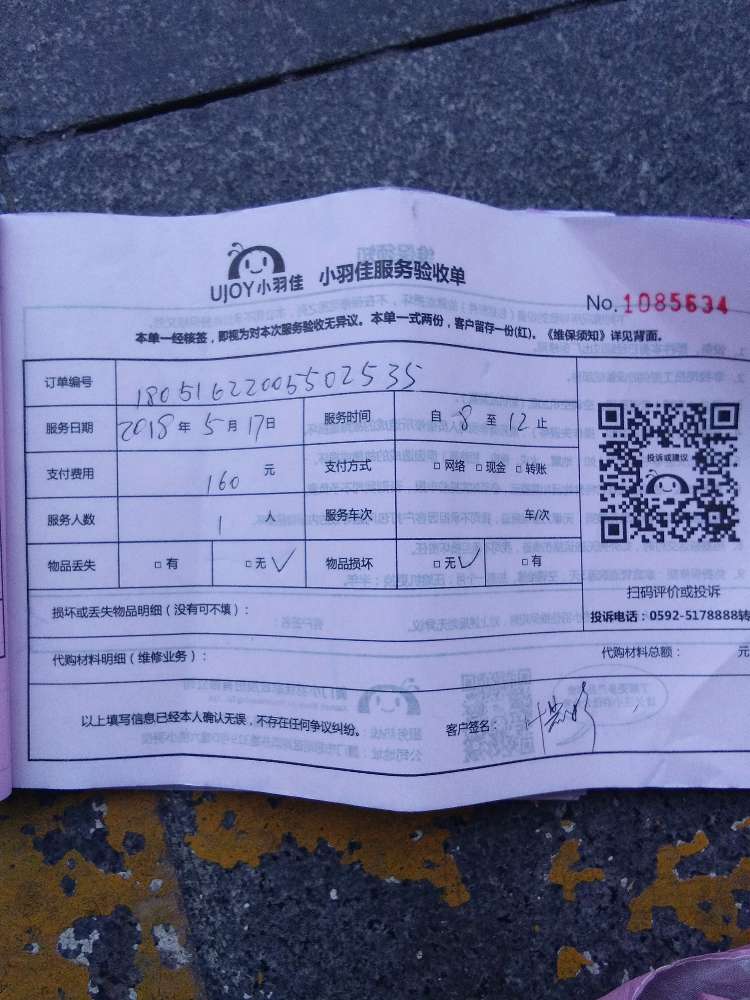 UJOY小羽佳 小羽佳服务验收单
No. 1085634
本单一经核签，即视为对本次服务验收无异议。本单一式两份，客户留存一份(红)。《维保须知》详见背面。
订单编号 180516220065502535
服务日期 2018年5月17日 服务时间 自8至12止
支付费用 160元 支付方式 □网络 □现金 □转账
服务人数 1人 服务车次 车/次
物品丢失 □有 □无✓ 物品损坏 □无✓ □有
投诉或建议
扫码评价或投诉
投诉电话：0592-5178888转
损坏或丢失物品明细（没有可不填）：
代购材料明细（维修业务）： 代购材料总额： 元
以上填写信息已经本人确认无误，不存在任何争议纠纷。 客户签名：